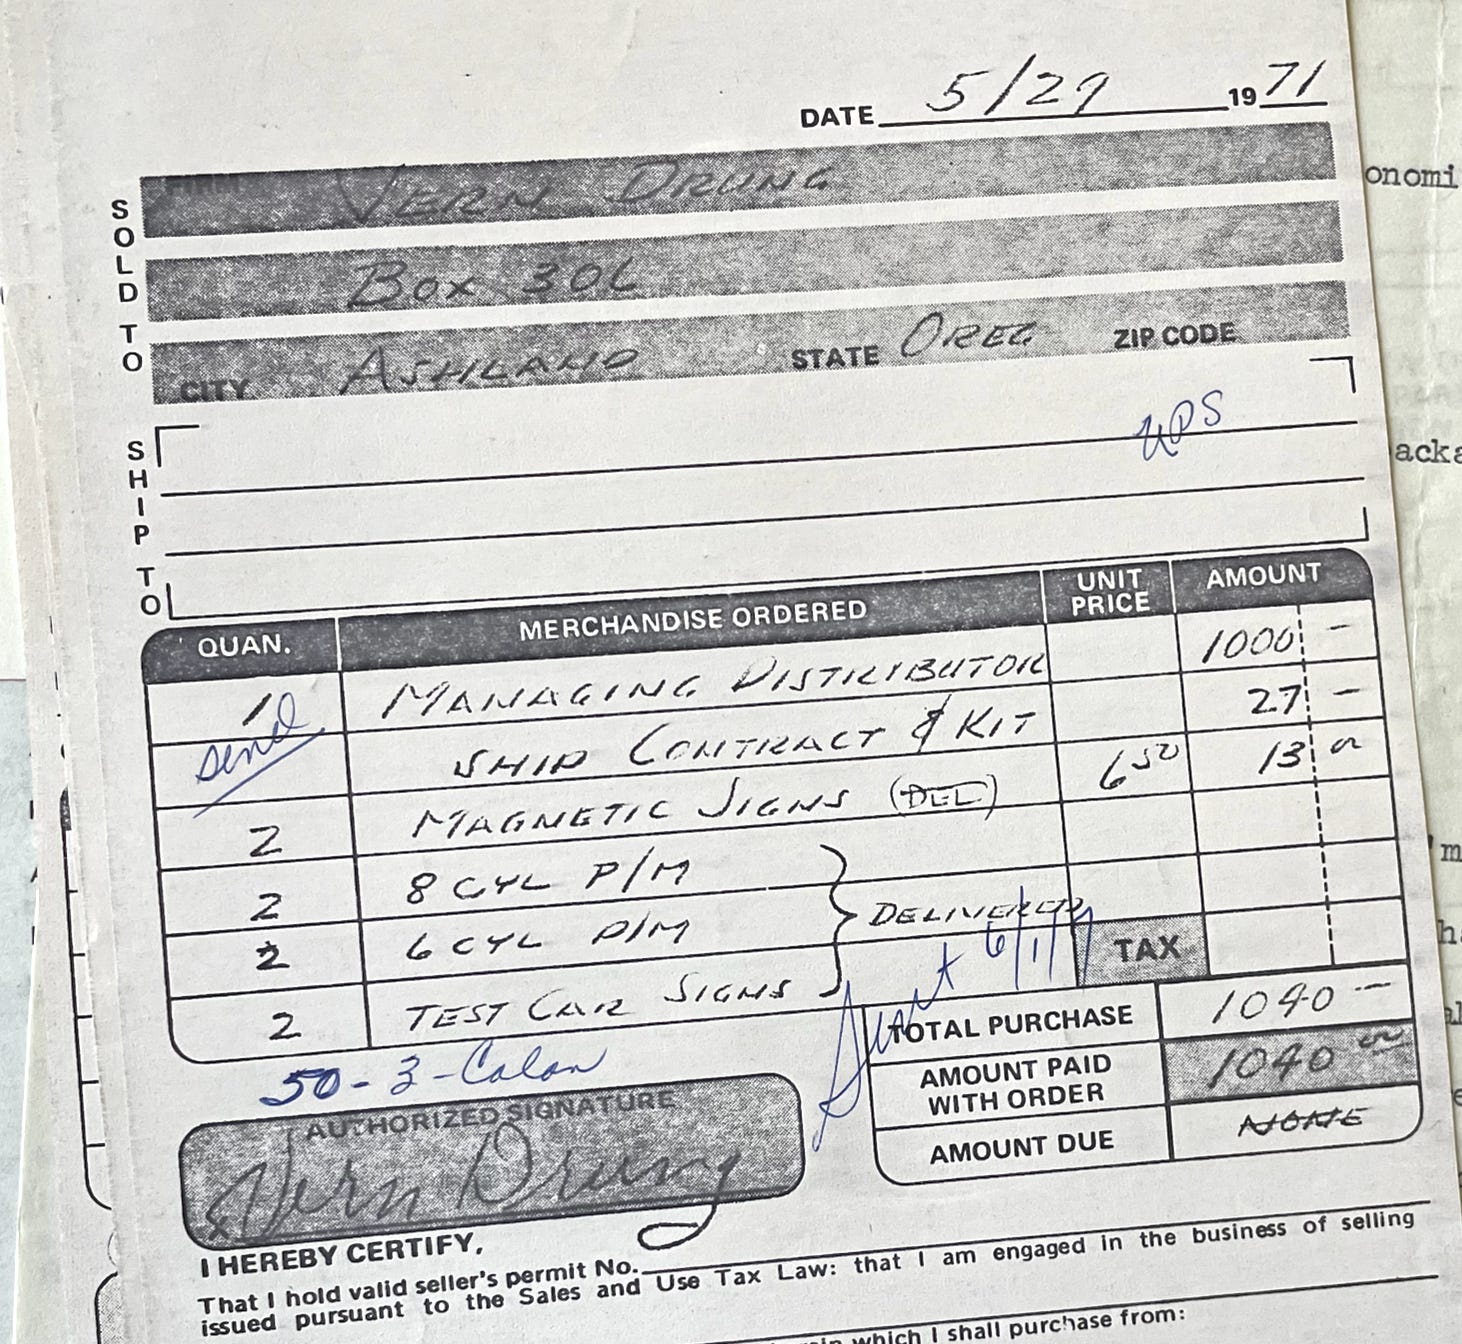 DATE 5/29 1971
SOLD TO
FIRM VERN DRUNG
BOX 306
CITY ASHLAND STATE OREG ZIP CODE
SHIP TO
UPS
QUAN. MERCHANDISE ORDERED UNIT PRICE AMOUNT
1 MANAGING DISTRIBUTOR 1000 –
send SHIP CONTRACT & KIT 27 –
2 MAGNETIC SIGNS (DEL) 6 50 13 00
2 8 CYL P/M
2 6 CYL P/M DELIVERED
2 TEST CAR SIGNS
6/1/7
TAX
TOTAL PURCHASE 1040 –
50-3-
AMOUNT PAID WITH ORDER 1040 00
AMOUNT DUE NONE
AUTHORIZED SIGNATURE
x Vern Drung
I HEREBY CERTIFY,
That I hold valid seller's permit No.
issued pursuant to the Sales and Use Tax Law: that I am engaged in the business of selling
which I shall purchase from:
onomi
acka
'm